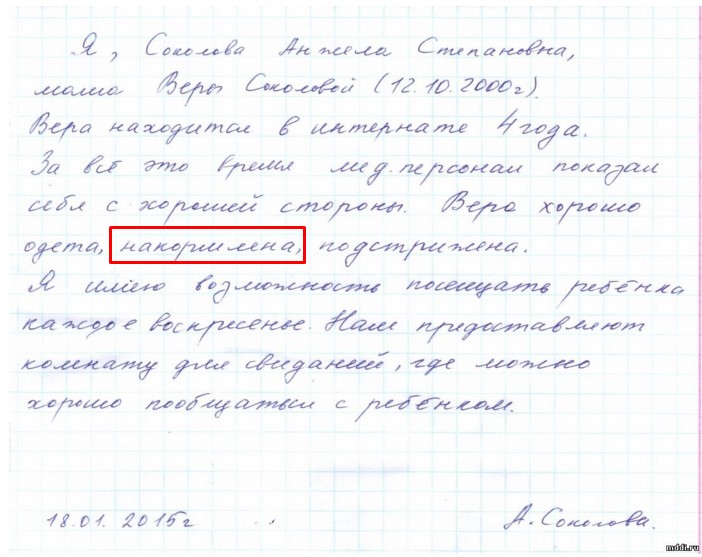 Я, Соколова Анжела Степановна,
мама Веры Соколовой (12.10.2000г).
Вера находится в интернате 4 года.
За всё это время мед.персонал показал
себя с хорошей стороны. Вера хорошо
одета, накормлена, подстрижена.
Я имею возможность посещать ребёнка
каждое воскресенье. Нам предоставляют
комнату для свиданий, где можно
хорошо пообщаться с ребёнком.
18.01.2015г А.Соколова.
mddi.ru